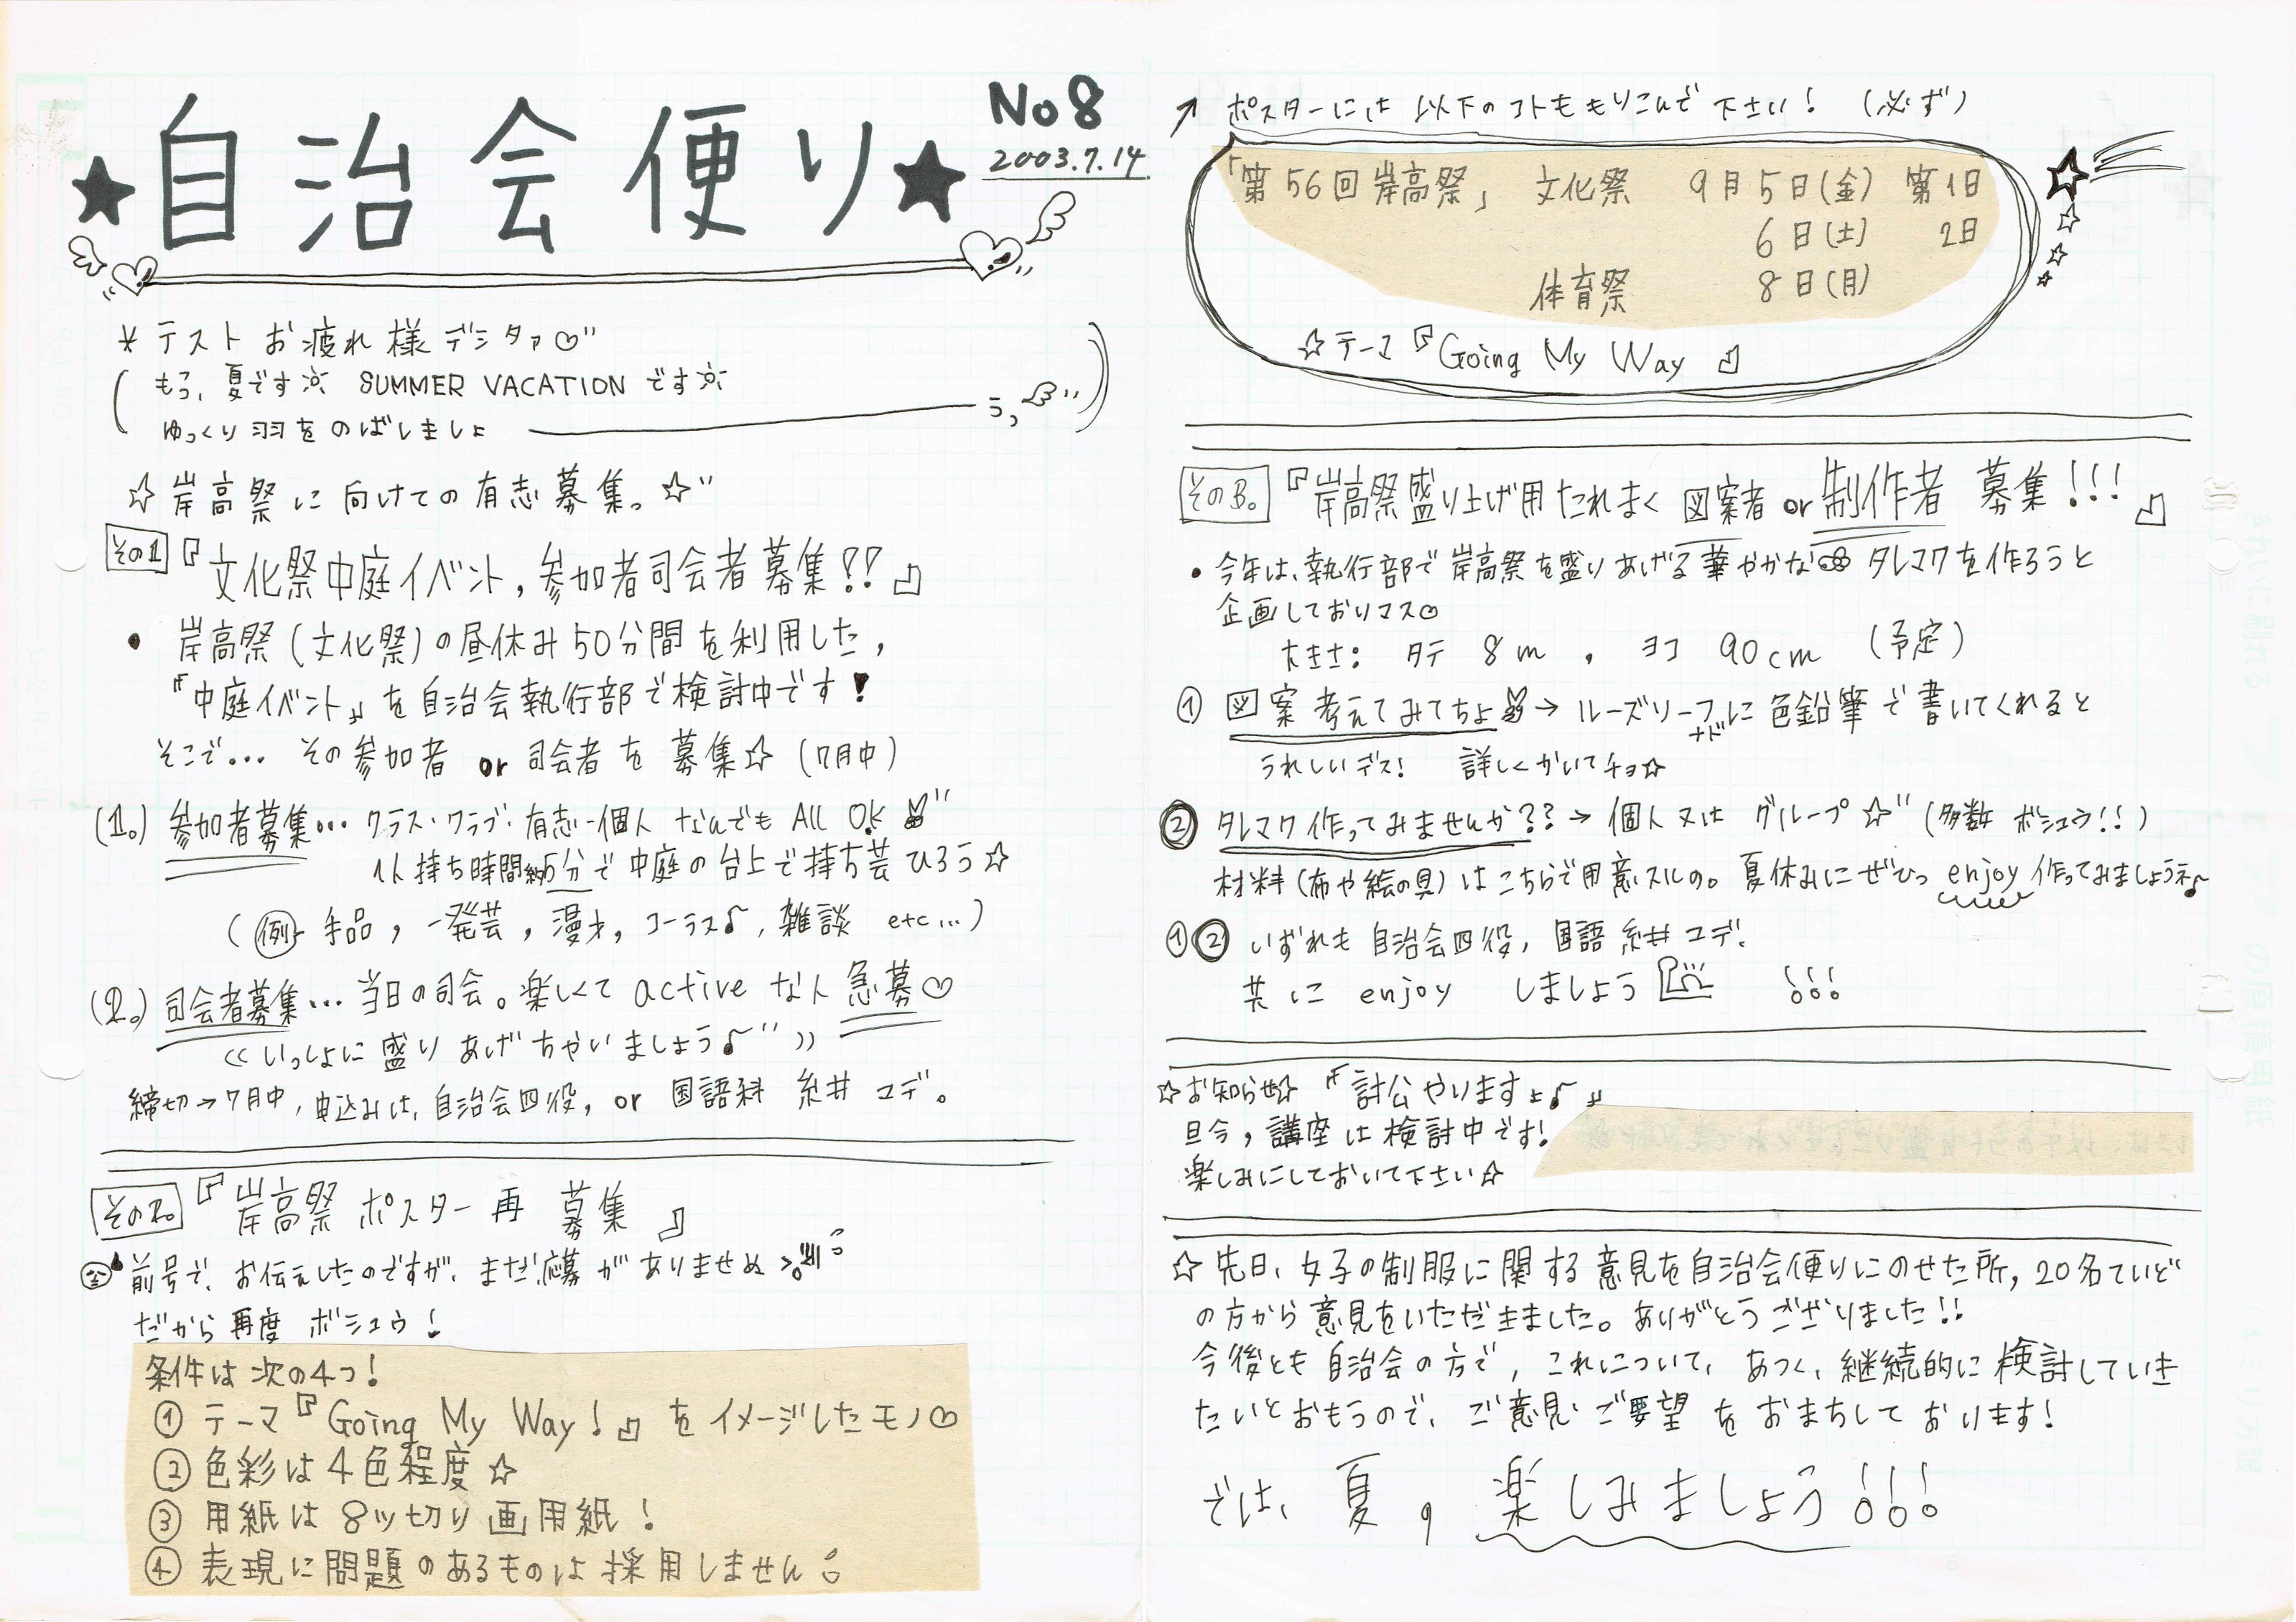 ★自治会便り★
No 8
2003.7.14
* テスト お疲れ様デシタァ♡"
もう、夏です☼ SUMMER VACATION です☼
ゆっくり羽をのばしましょ――う。
☆岸高祭に向けての有志募集。☆"
その1 『文化祭中庭イベント,参加者司会者募集!!』
• 岸高祭(文化祭)の昼休み50分間を利用した,
『中庭イベント』を自治会執行部で検討中です!
そこで… その参加者 or 司会者を募集☆ (7月中)
(1。) 参加者募集… クラス・クラブ・有志・個人 なんでも All OK
1人持ち時間約5分で中庭の台上で持ち芸ひろう☆
(例 手品, 一発芸, 漫才, コーラス♪, 雑談 etc…)
(2。) 司会者募集… 当日の司会。楽しくて active な人急募♡
≪いっしょに盛りあげちゃいましょう♪"≫
締切→7月中, 申込みは,自治会四役, or 国語科 糸井 マデ。
その2。『岸高祭ポスター再 募集』
前号で、お伝えしたのですが、まだ応募がありませぬ
だから再度 ボシュウ!
条件は次の4つ!
① テーマ『Going My Way!』をイメージしたモノ♡
② 色彩は4色程度☆
③ 用紙は8ツ切り画用紙!
④ 表現に問題のあるものは採用しません
↗ ポスターには 以下のコトももりこんで下さい! (必ず)
「第56回岸高祭」 文化祭 9月5日(金) 第1日
6日(土) 2日
体育祭 8日(月)
☆テーマ『Going My Way』
その3。『岸高祭盛り上げ用たれまく図案者 or 制作者 募集!!!』
• 今年は、執行部で岸高祭を盛りあげる華やかなタレマクを作ろうと
企画しておりマス♡
大きさ: タテ 8m , ヨコ 90cm (予定)
① 図案考えてみてちょ→ルーズリーフナドに色鉛筆で書いてくれると
うれしいデス! 詳しくかいてチョ☆
② タレマク作ってみませんか??→個人又は グループ☆" (多数 ボシュウ!!)
材料(布や絵の具)はこちらで用意スルの。夏休みにぜひっ enjoy 作ってみましょうネ♪
①② いずれも 自治会四役, 国語 糸井 マデ.
共に enjoy しましょう !!!
☆お知らせ☆ 『討公やりますよ♪』
旦今,講座は検討中です!
楽しみにしておいて下さい☆
☆先日、女子の制服に関する意見を自治会便りにのせた所,20名ていど
の方から意見をいただきました。ありがとうございました!!
今後とも自治会の方で,これについて、あつく、継続的に検討していき
たいとおもうので、ご意見・ご要望をおまちしております!
では、夏, 楽しみましょう!!!